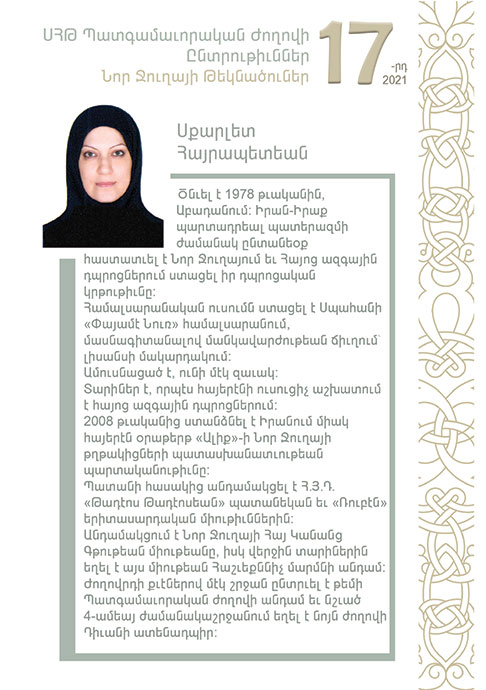 ՍՀԹ Պատգամաւորական Ժողովի
Ընտրութիւններ
Նոր Ջուղայի Թեկնածուներ
17
-րդ
2021
Սքարլետ
Հայրապետեան
Ծնւել է 1978 թւականին,
Աբադանում: Իրան-Իրաք
պարտադրեալ պատերազմի
ժամանակ ընտանեօք
հաստատւել է Նոր Ջուղայում եւ Հայոց ազգային
դպրոցներում ստացել իր դպրոցական
կրթութիւնը:
Համալսարանական ուսումն ստացել է Սպահանի
«Փայամէ Նուռ» համալսարանում,
մասնագիտանալով մանկավարժութեան ճիւղում՝
լիսանսի մակարդակում:
Ամուսնացած է, ունի մէկ զաւակ:
Տարիներ է, որպէս հայերէնի ուսուցիչ աշխատում
է հայոց ազգային դպրոցներում:
2008 թւականից ստանձնել է Իրանում միակ
հայերէն օրաթերթ «Ալիք»-ի Նոր Ջուղայի
թղթակիցների պատասխանատւութեան
պարտականութիւնը:
Պատանի հասակից անդամակցել է Հ.Յ.Դ.
«Թադէոս Թադէոսեան» պատանեկան եւ «Ռուբէն»
երիտասարդական միութիւններին:
Անդամակցում է Նոր Ջուղայի Հայ Կանանց
Գթութեան միութեանը, իսկ վերջին տարիներին
եղել է այս միութեան Հաշւեքննիչ մարմնի անդամ:
Ժողովրդի քւէներով մէկ շրջան ընտրւել է թեմի
Պատգամաւորական ժողովի անդամ եւ նշւած
4-ամեայ ժամանակաշրջանում եղել է նոյն ժողովի
Դիւանի ատենադպիր: